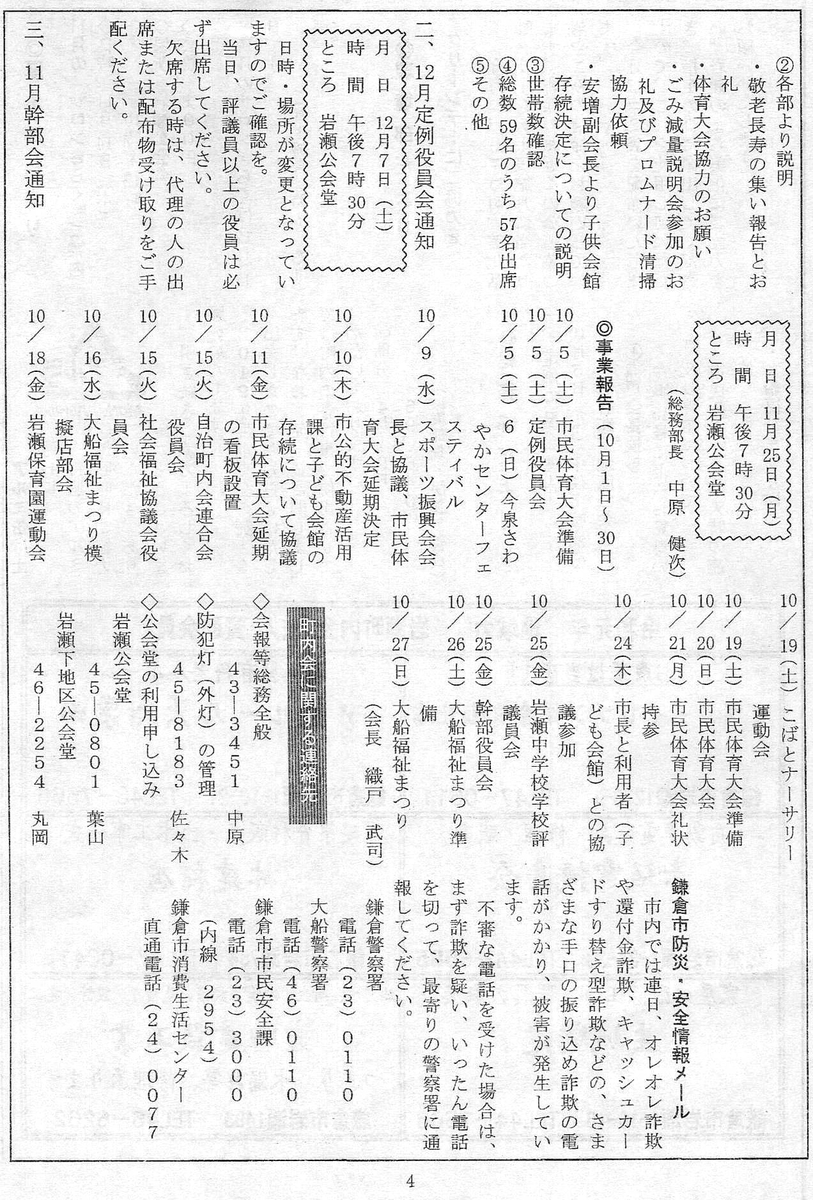 ②各部より説明
・敬老長寿の集い報告とお
礼
・体育大会協力のお願い
・ごみ減量説明会参加のお
礼及びプロムナード清掃
協力依頼
・安増副会長より子供会館
存続決定についての説明
③世帯数確認
④総数59名のうち57名出席
⑤その他
二、12月定例役員会通知
月　日　12月7日（土）
時　間　午後7時30分
ところ　岩瀬公会堂
日時・場所が変更となってい
ますのでご確認を。
当日、評議員以上の役員は必
ず出席してください。
欠席する時は、代理の人の出
席または配布物受け取りをご手
配ください。
三、11月幹部会通知
月　日　11月25日（月）
時　間　午後7時30分
ところ　岩瀬公会堂
（総務部長　中原　健次）
◎事業報告（10月1日～30日）
10／5（土）市民体育大会準備
10／5（土）定例役員会
10／5（土）6（日）今泉さわ
やかセンターフェ
スティバル
10／9（水）スポーツ振興会会
長と協議、市民体
育大会延期決定
10／10（木）市公的不動産活用
課と子ども会館の
存続について協議
10／11（金）市民体育大会延期
の看板設置
10／15（火）自治町内会連合会
役員会
10／15（火）社会福祉協議会役
員会
10／16（水）大船福祉まつり模
擬店部会
10／18（金）岩瀬保育園運動会
10／19（土）こばとナーサリー
運動会
10／19（土）市民体育大会準備
10／20（日）市民体育大会
10／21（月）市民体育大会礼状
持参
10／24（木）市長と利用者（子
ども会館）との協
議参加
10／25（金）岩瀬中学校学校評
議員会
10／25（金）幹部役員会
10／26（土）大船福祉まつり準
備
10／27（日）大船福祉まつり
（会長　織戸　武司）
町内会に関する連絡先
◇会報等総務全般
43―3451　中原
◇防犯灯（外灯）の管理
45―8183　佐々木
◇公会堂の利用申し込み
岩瀬公会堂
45―0801　葉山
岩瀬下地区公会堂
46―2254　丸岡
鎌倉市防災・安全情報メール
市内では連日、オレオレ詐欺
や還付金詐欺、キャッシュカー
ドすり替え型詐欺などの、さま
ざまな手口の振り込め詐欺の電
話がかかり、被害が発生してい
ます。
不審な電話を受けた場合は、
まず詐欺を疑い、いったん電話
を切って、最寄りの警察署に通
報してください。
鎌倉警察署
電話（23）0110
大船警察署
電話（46）0110
鎌倉市市民安全課
電話（23）3000
（内線　2954）
鎌倉市消費生活センター
直通電話（24）0077
4